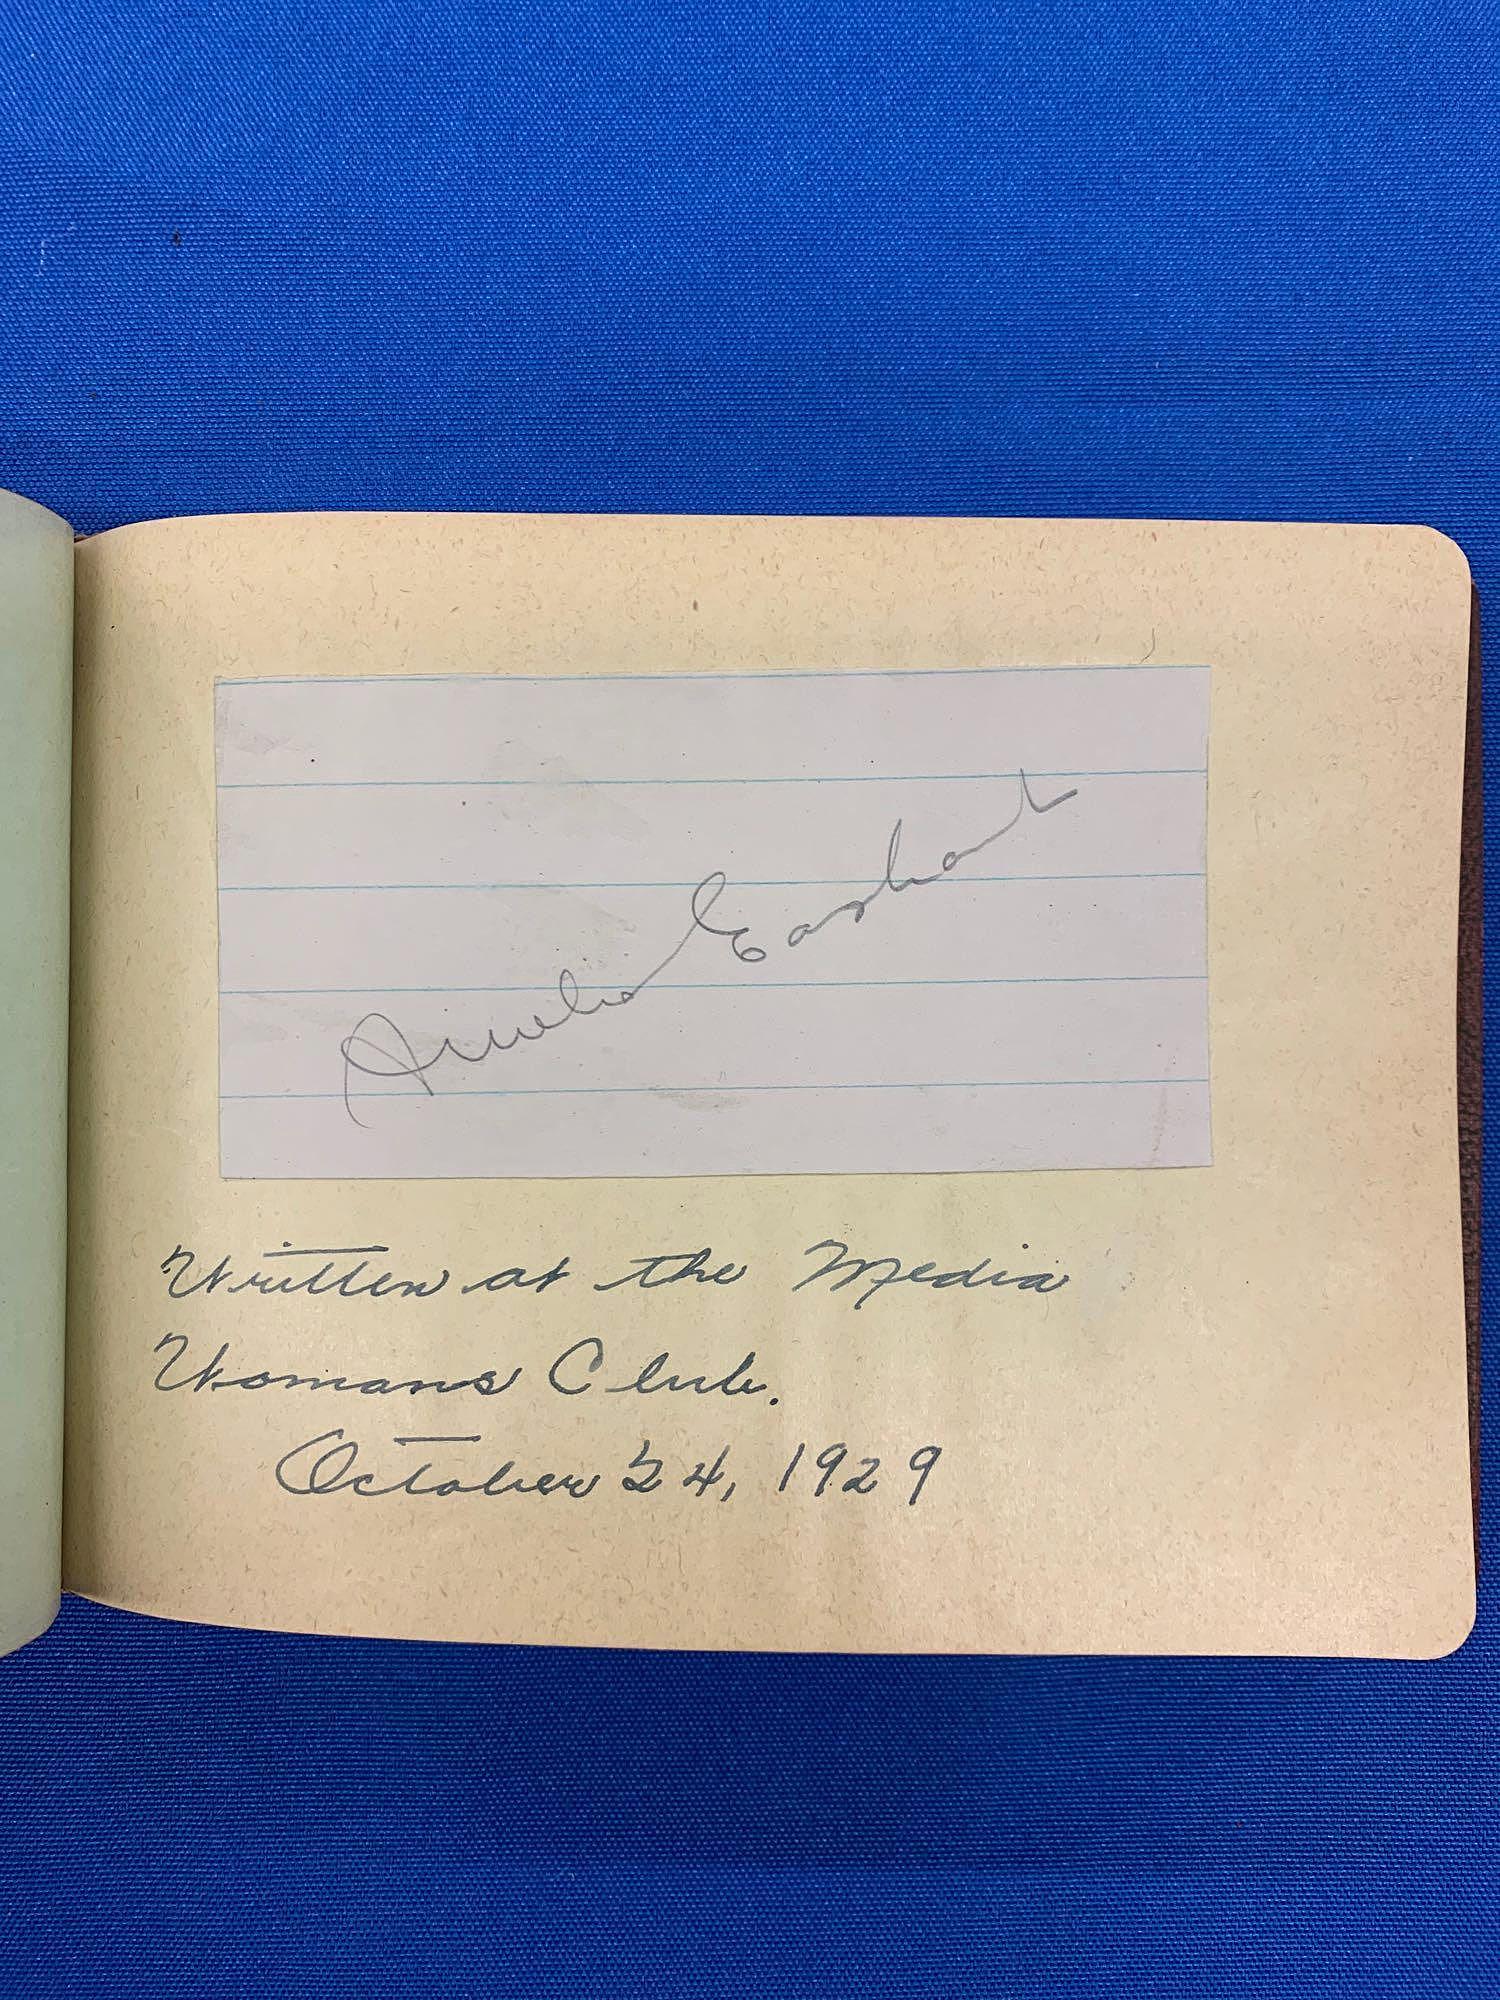 Amelia Earhart
Written at the Media
Womans Club.
October 24, 1929